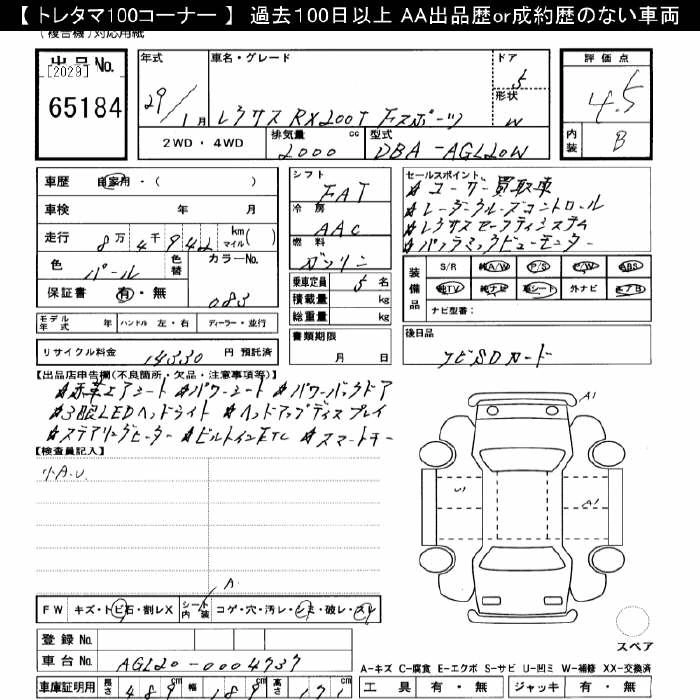 【 トレタマ100コーナー 】 過去100日以上 AA出品歴or成約歴のない車両
(複合機)対応用紙
出品No. [2029] 65184
年式 29/1月
車名・グレード レクサス RX200T Fスポーツ
ドア 5
形状 W
評価点 4.5
内装 B
2WD・4WD
排気量 2000 cc
型式 DBA-AGL20W
車歴 自家用・( )
車検 年 月
走行 8万4千942 km マイル( )
色 パール 色替 カラーNo. 083
保証書 有・無
シフト FAT
冷房 AAC
燃料 ガソリン
乗車定員 5 名
積載量 kg
総重量 kg
書類期限 月 日
セールスポイント
#ユーザー買取車
#レーダークルーズコントロール
#レクサスセーフティシステム
#パノラミックビューモニター
装備品 S/R 純A/W P/S P/W ABS
純TV 純ナビ 革シート 外ナビ エアB
ナビ型番:
モデル年式 年 ハンドル 左・右 ディーラー・並行
リサイクル料金 14330 円 預託済
後日品 ナビSDカード
【出品店申告欄(不良箇所・欠品・注意事項等)】
#赤革エアシート #パワーシート #パワーバックドア
#3眼LEDヘッドライト #ヘッドアップディスプレイ
#ステアリングヒーター #ビルトインETC #スマートキー
【検査員記入】
A.U.
A1
U1
A1
A.
FW キズ・トビ石・割レX シート内装 コゲ・穴・汚レ・シミ・破レ・スレ
スペア
登録No.
車台No. AGL20-0004737
A-キズ C-腐食 E-エクボ S-サビ U-凹ミ W-補修 XX-交換済
車庫証明用 長さ 489 cm 幅 189 cm 高さ 171
工具 有・無 ジャッキ 有・無